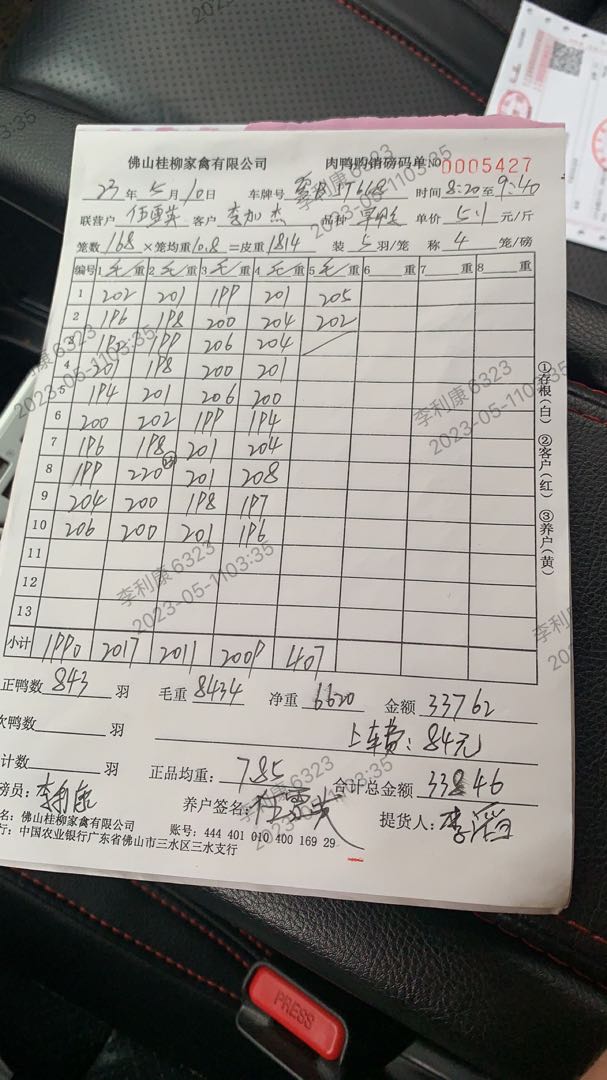 佛山桂柳家禽有限公司 肉鸭购销磅码单 NO 0005427
23年5月10日 车牌号 时间 8:20至9:40
联营户 伍雪英 客户 李加杰 品种 单价 5.1 元/斤
笼数 168 ×笼均重 10.8 =皮重 1814 装 5 羽/笼 称 4 笼/磅
编号 1 毛/重 2 毛/重 3 毛/重 4 毛/重 5 毛/重 6 重 7 重 8 重
1 202 201 199 201 205
2 196 198 200 204 202
3 199 206 204
4 201 198 200 201
5 194 201 206 200
6 200 202 199 194
7 196 198 201 204
8 199 220 201 208
9 204 200 198 197
10 206 200 201 196
11
12
13
小计 1990 2017 2011 2009 407
正鸭数 843 羽 毛重 8434 净重 6620 金额 33762
次鸭数 羽 上车费：84元
计数 羽 正品均重： 7.85 合计总金额 33846
磅员：李利康 养户签名： 提货人：李滔
名：佛山桂柳家禽有限公司 账号：444 401 010 400 169 29
行：中国农业银行广东省佛山市三水区三水支行
①存根（白） ②客户（红） ③养户（黄）
李利康 6323
2023-05-1103:35
PRESS